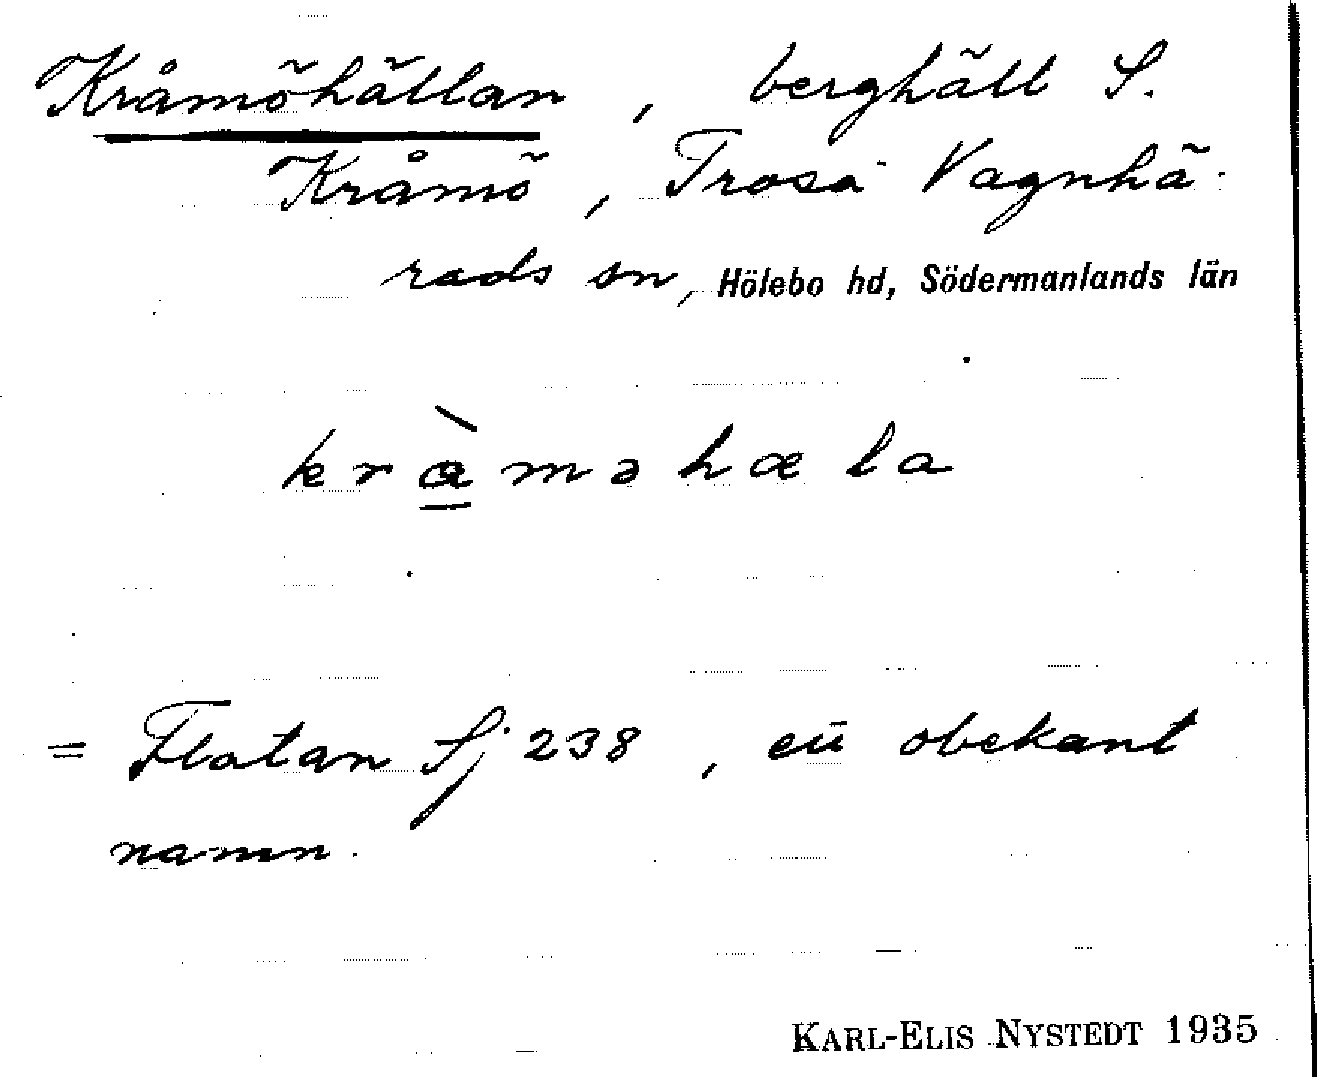 Kråmöhällan, berghäll S.
Kråmö, Trosa-Vagnhä-
rads sn, Hölebo hd, Södermanlands län
kràməhæla
= Flatan Sj 238, eü obekant
namn.
KARL-ELIS NYSTEDT 1935